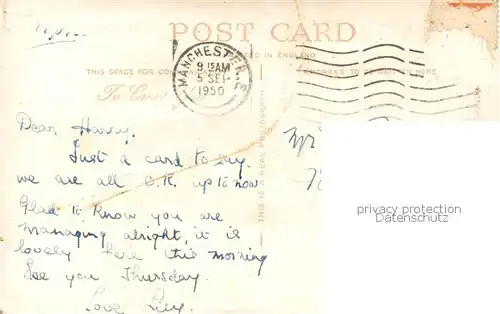 POST CARD
MANCHESTER
9 15AM
5 SEP
1950
IN ENGLAND
THIS SPACE FOR
ADDRESS TO BE WRITTEN HERE
THIS IS A REAL PHOTOGRAPH
Dear Harry,
Just a card to say
we are all O.K. up to now
Glad to know you are
managing alright, it is
lovely here this morning
See you Thursday.
Love Lily.
privacy protection
Datenschutz